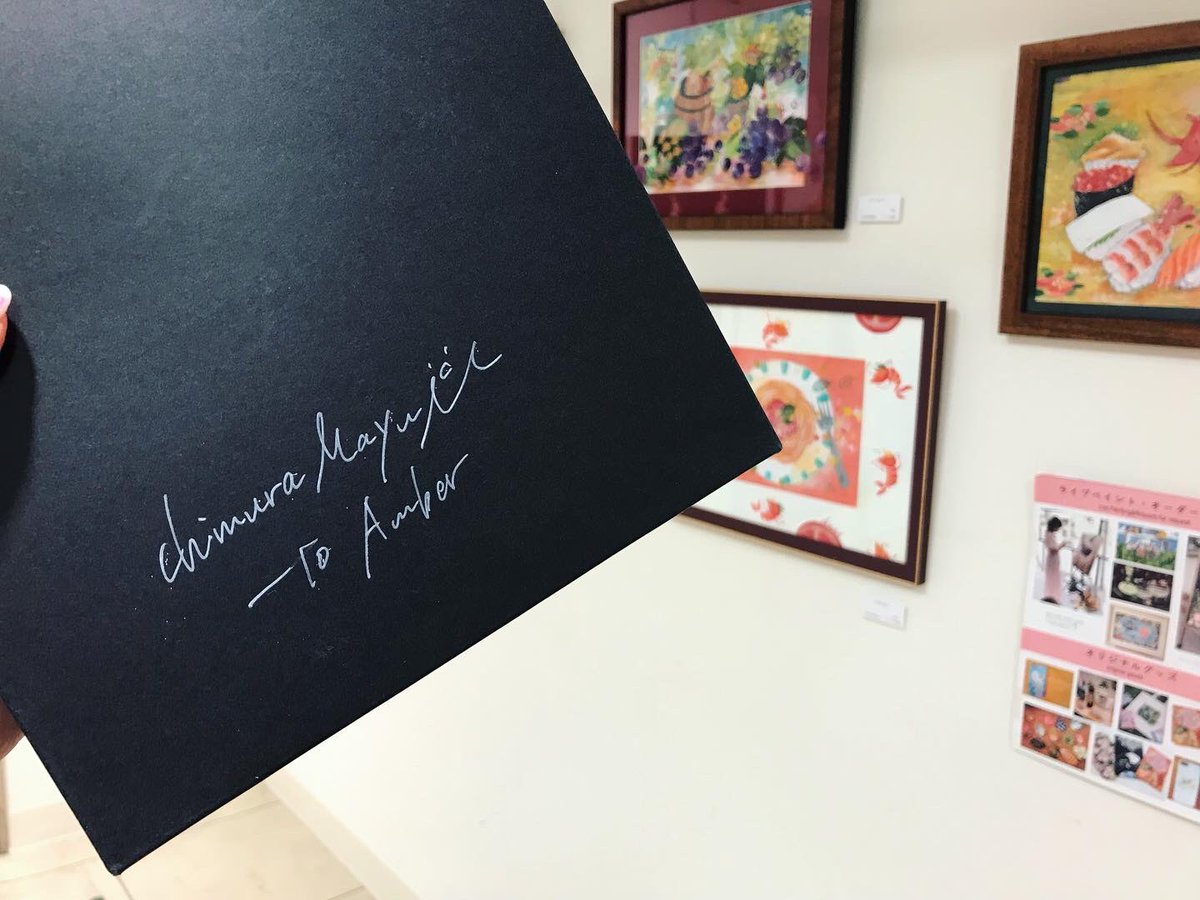 Chimura Mayuki
—To Amber
ライブペイント・オーダー
オリジナルグッズ